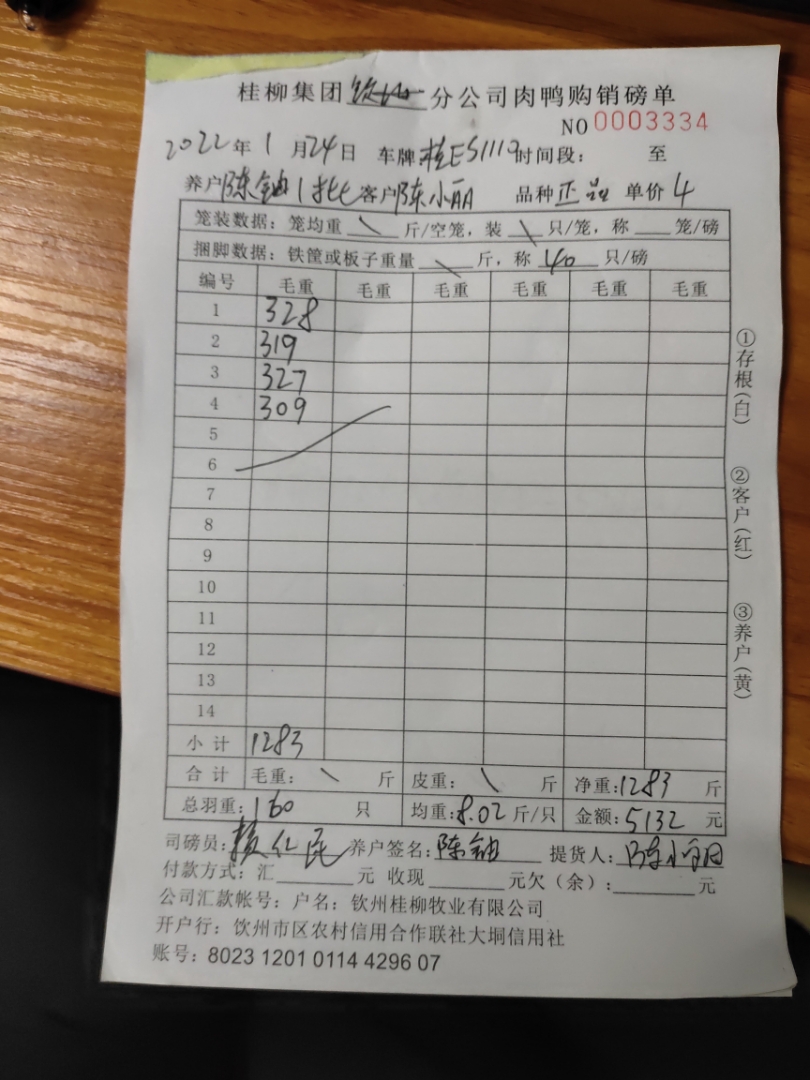 桂柳集团钦州分公司肉鸭购销磅单
NO 0003334
2022年1月24日 车牌桂ES1119时间段： 至
养户陈铀1批客户陈小丽 品种正品 单价4
笼装数据：笼均重 \ 斤/空笼，装 \ 只/笼，称 笼/磅
捆脚数据：铁筐或板子重量 \ 斤，称 40 只/磅
编号 毛重 毛重 毛重 毛重 毛重 毛重
1 328
2 319
3 327
4 309
5
6
7
8
9
10
11
12
13
14
小计 1283
合计 毛重： \ 斤 皮重： \ 斤 净重：1283 斤
总羽重：160 只 均重：8.02斤/只 金额：5132 元
司磅员：仁民 养户签名：陈铀 提货人：陈小丽
付款方式：汇 元 收现 元欠（余）： 元
公司汇款帐号：户名：钦州桂柳牧业有限公司
开户行：钦州市区农村信用合作联社大垌信用社
账号：8023 1201 0114 4296 07
①存根（白）
②客户（红）
③养户（黄）